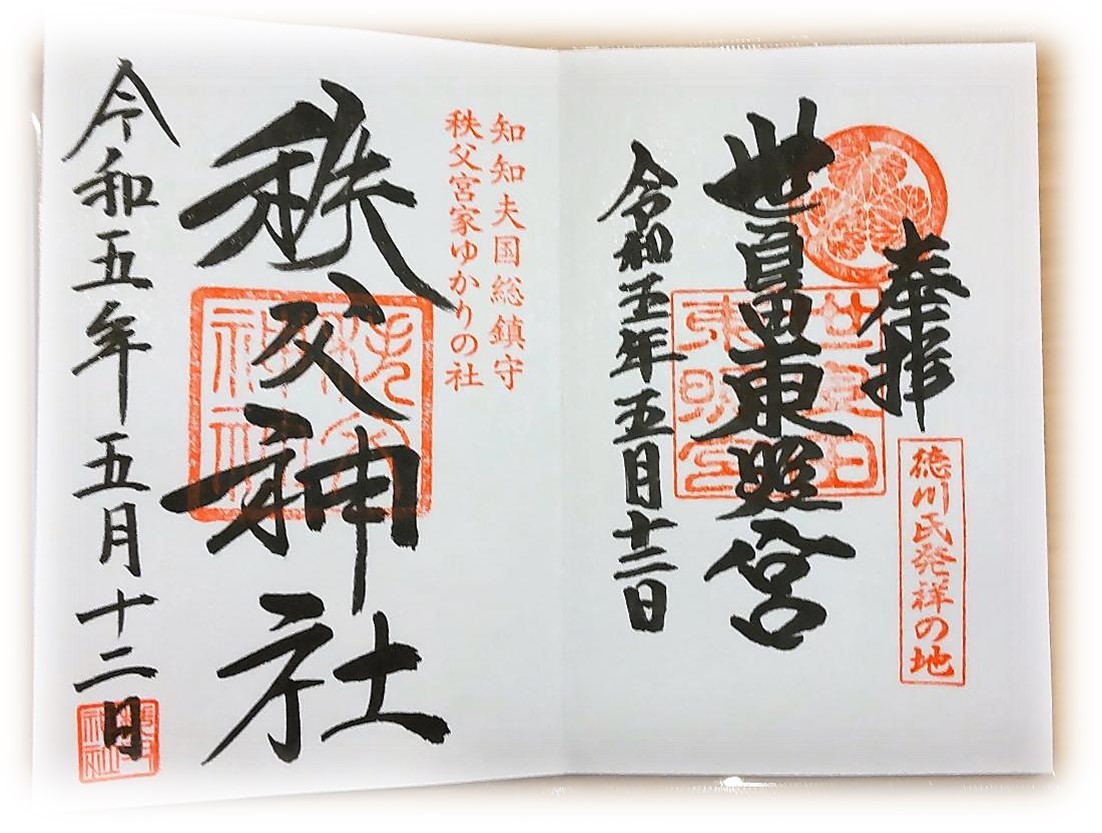 奉拝
徳川氏発祥の地
世良田東照宮
世良田
東照宮
令和五年五月十二日
知知夫国総鎮守
秩父宮家ゆかりの社
秩父神社
秩父
神社
令和五年五月十二日